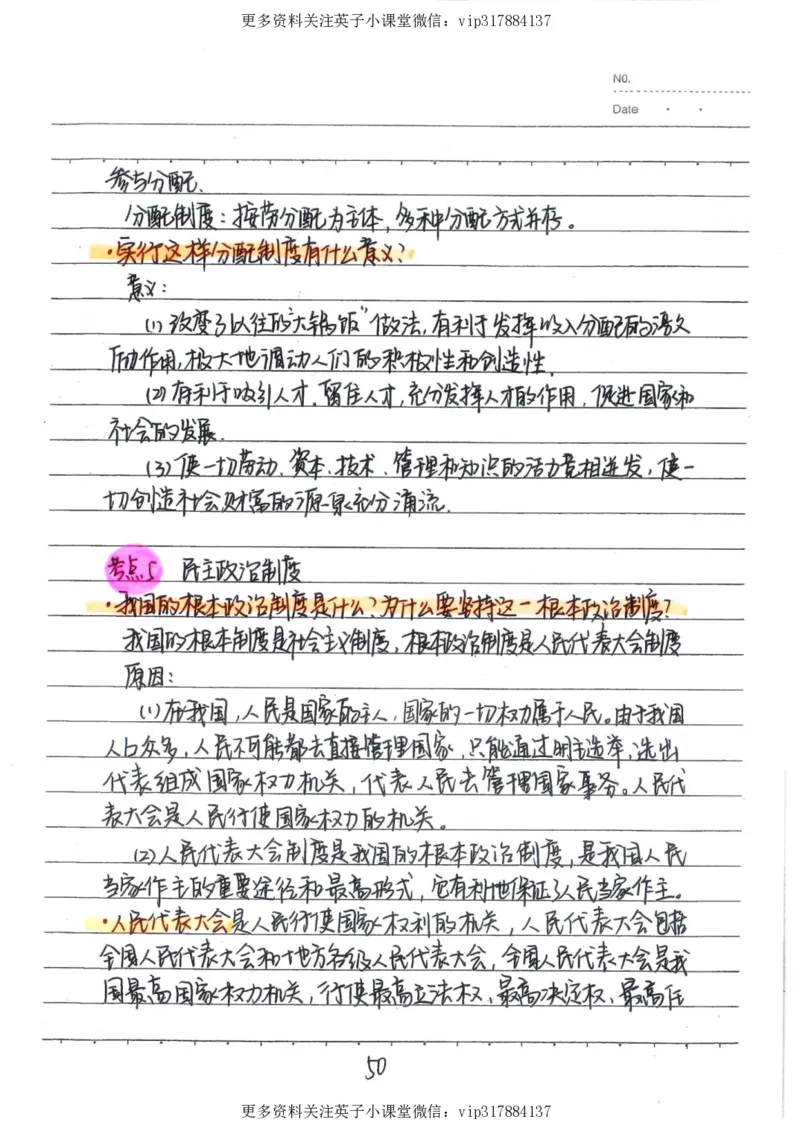 更多资料关注英子小课堂微信：vip317884137
No.
Date
参与分配.
分配制度：按劳分配为主体，多种分配方式并存。
·实行这样分配制度有什么意义？
意义：
(1) 改变了以往的"大锅饭"做法，有利于发挥收入分配的激
励作用，极大地调动人们的积极性和创造性.
(2) 有利于吸引人才、留住人才，充分发挥人才的作用，促进国家和
社会的发展.
(3) 使一切劳动、资本、技术、管理和知识的活力竞相迸发，使一
切创造社会财富的源泉充分涌流.
考点5 民主政治制度
·我国的根本政治制度是什么？为什么要坚持这一根本政治制度？
我国的根本制度是社会主义制度，根本政治制度是人民代表大会制度
原因：
(1) 在我国，人民是国家的主人，国家的一切权力属于人民。由于我国
人口众多，人民不可能都去直接管理国家，只能通过民主选举，选出
代表组成国家权力机关，代表人民去管理国家事务。人民代
表大会是人民行使国家权力的机关。
(2) 人民代表大会制度是我国的根本政治制度，是我国人民
当家作主的重要途径和最高形式，它有利地保证了人民当家作主。
·人民代表大会是人民行使国家权利的机关，人民代表大会包括
全国人民代表大会和地方各级人民代表大会，全国人民代表大会是我
国最高国家权力机关，行使最高立法权、最高决定权、最高任
50
更多资料关注英子小课堂微信：vip317884137